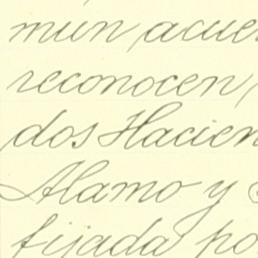 mún acuer
reconocen
dos Hacien
Alamo y
fijada po